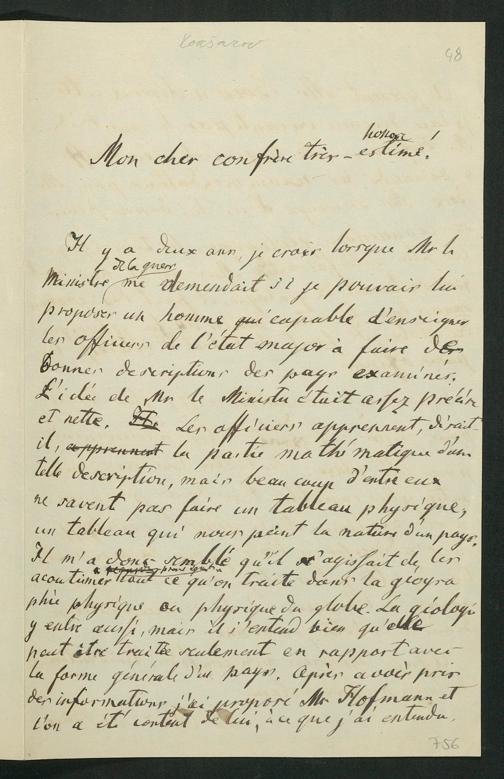 48
honoré
Mon cher confrère très-estimé!
Il y a deux ans, je crois lorsque Mr le
de la guerre
Ministre me demendait si je pouvais lui
proposer un homme qui capable d'enseigner
les officiers de l'état major à faire de
bonnes descriptions des pays examinés.
L'idée de Mr le Ministre était assez précise
et nette. Les officiers apprennent, disait
il, apprennent la partie mathématique d'une
telle description, mais beaucoup d'entre eux
ne savent pas faire un tableau physique,
un tableau qui nous peint la nature d'un pays.
Il m'a donc semblé qu'il s'agissait de les
acoutumer tout ce qu'on traite dans la geogra
phie physique ou physique du globe. La géologie
y entre aussi, mais il s'entend bien qu'elle
peut être traité seulement en rapport avec
la forme générale d'un pays. Après avoir pris
des informations j'ai proposé Mr Hofmann et
l'on a été content de lui, à ce que j'ai entendu.
756